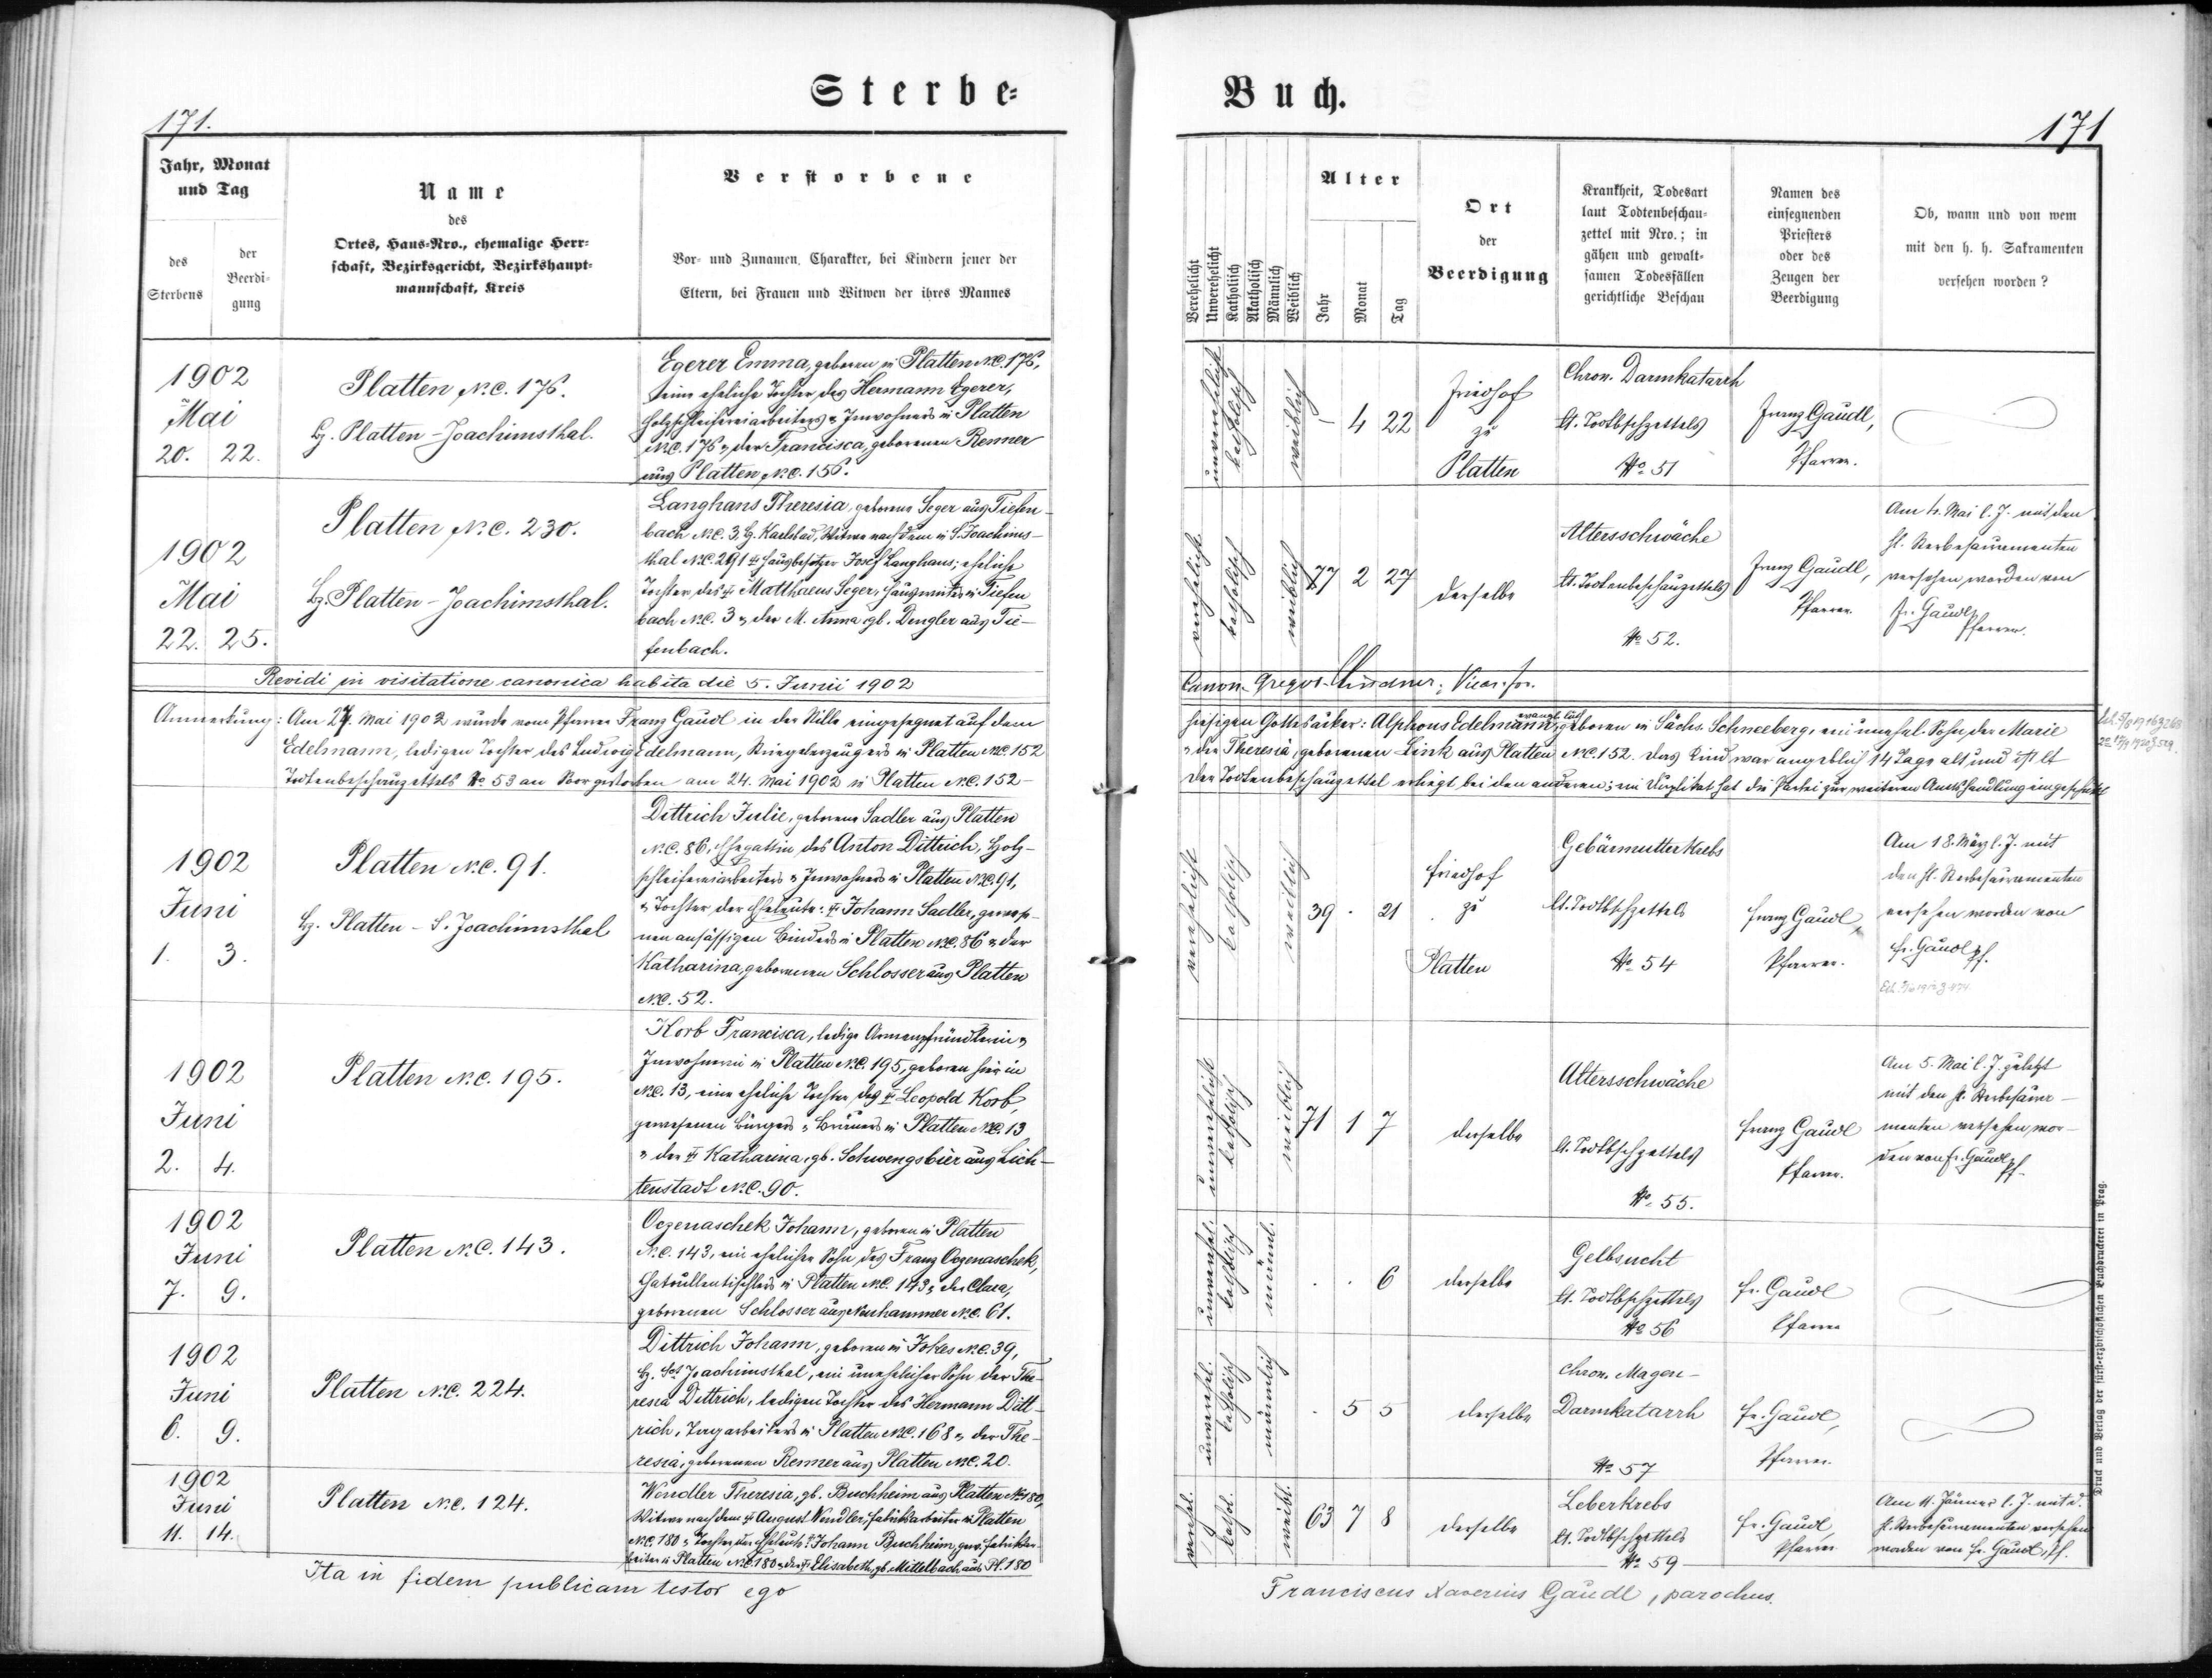 Sterbe-
Buch.
171.
171
Jahr, Monat
und Tag
des
Sterbens
der
Beerdi-
gung
Name
des
Ortes, Haus-Nro., ehemalige Herr-
schaft, Bezirksgericht, Bezirkshaupt-
mannschaft, Kreis
Verstorbene
Vor- und Zunamen, Charakter, bei Kindern jener der
Eltern, bei Frauen und Witwen der ihres Mannes
Verehelicht
Unverehelicht
Katholisch
Akatholisch
Männlich
Weiblich
Alter
Jahr
Monat
Tag
Ort
der
Beerdigung
Krankheit, Todesart
laut Todtenbeschau-
zettel mit Nro.; in
gähen und gewalt-
samen Todesfällen
gerichtliche Beschau
Namen des
einsegnenden
Priesters
oder des
Zeugen der
Beerdigung
Ob, wann und von wem
mit den h. h. Sakramenten
versehen worden?
1902
Mai
20. 22.
Platten N.C. 176.
Bz. Platten-Joachimsthal.
Egerer Emma, geboren in Platten N.C. 176,
eine eheliche Tochter des Hermann Egerer,
Holzschleifereiarbeiters u. Inwohners in Platten
N.C. 176 u. der Francisca, geborenen Renner
aus Platten N.C. 156.
unverehelicht
katholisch
weiblich
– 4 22
Friedhof
zu
Platten
Chron. Darmkatarrh
lt. Todtbschzettels
No 51
Franz Gaudl,
Pfarrer.
1902
Mai
22. 25.
Platten N.C. 230.
Bz. Platten-Joachimsthal.
Langhans Theresia, geborene Seger aus Tiefen-
bach N.C. 3, Bz. Karlsbad, Witwe nach dem in S. Joachims-
thal N.C. 291 † Hausbesitzer Josef Langhans; eheliche
Tochter des † Matthaeus Seger, in Tiefen
bach N.C. 3 u. der M. Anna gb. Dengler aus Tie-
fenbach.
verehelicht
katholisch
weiblich
77 2 27
derselbe
Altersschwäche
lt. Todtenbeschauzettels
No 52.
Franz Gaudl,
Pfarrer.
Am 4. Mai l. J. mit den
hl. Sterbesacramenten
versehen worden von
Fr. Gaudl,
Pfarrer.
Revidi in visitatione canonica habita die 5. Junii 1902
Canon. Gregor Lindner, Vicar. for.
Anmerkung: Am 27. Mai 1902 wurde vom Pfarrer Franz Gaudl in der Stille eingesegnet auf dem
hiesigen Gottesacker: Alphons Edelmann, geboren in Sächs. Schneeberg, ein unehel. Sohn der Marie
Edelmann, ledigen Tochter des Ludwig Edelmann, in Platten N.C. 152
u. der Theresia, geborenen Link aus Platten N.C. 152. Das Kind war angeblich 14 Tage alt und ist lt
Todtenbeschauzettels No. 53 an gestorben am 24. Mai 1902 in Platten N.C. 152
Der Todtenbeschauzettel erliegt bei den anderen; ein Duplikat hat die Partei zur weiteren Amtshandlung
1902
Juni
1. 3.
Platten N.C. 91.
Bz. Platten-S. Joachimsthal
Dittrich Julie, geborene Sadler aus Platten
N.C. 86, Ehegattin des Anton Dittrich, Holz-
schleifereiarbeiters u. Inwohners in Platten N.C. 91,
u. Tochter der Eheleute: † Johann Sadler, gewese-
nen ansässigen Binders in Platten N.C. 86 u. der
Katharina, geborenen Schlosser aus Platten
N.C. 52.
verehelicht
katholisch
weiblich
39 · 21
Friedhof
zu
Platten
Gebärmutterkrebs
lt. Todtbschzettels
No 54
Franz Gaudl,
Pfarrer.
Am 18. März l. J. mit
den hl. Sterbesacramenten
versehen worden von
Fr. Gaudl, Pf.
1902
Juni
2. 4.
Platten N.C. 195.
Korb Francisca, ledige Armenpfründlerin u.
Inwohnerin in Platten N.C. 195, geboren hier in
N.C. 13, eine eheliche Tochter des † Leopold Korb,
gewesenen Bürgers u. Bräuers in Platten N.C. 13
u. der † Katharina, gb. Schwengsbier aus Lich-
tenstadt N.C. 90.
unverehelicht
katholisch
weiblich
71 1 7
derselbe
Altersschwäche
lt. Todtbschzettels
No. 55.
Franz Gaudl
Pfarrer.
Am 5. Mai l. J. zuletzt
mit den hl. Sterbesacra-
menten versehen wor-
den von Fr. Gaudl, Pf.
1902
Juni
7. 9.
Platten N.C. 143.
Oczenaschek Johann, geboren in Platten
N.C. 143, ein ehelicher Sohn des Franz Oczenaschek,
Chatoullentischlers in Platten N.C. 143 u. der Clara,
geborenen Schlosser aus Neuhammer N.C. 61.
unverehel.
katholisch
männl.
· · 6
derselbe
Gelbsucht
lt. Todtbschzettels
No 56
Fr. Gaudl
Pfarrer
1902
Juni
6. 9.
Platten N.C. 224.
Dittrich Johann, geboren in Jokes N.C. 39,
Bz. Sct. Joachimsthal, ein unehelicher Sohn der The-
resia Dittrich, ledigen Tochter des Hermann Ditt-
rich, Tagarbeiters in Platten N.C. 168 u. der The-
resia, geborenen Renner aus Platten N.C. 20.
unverehel.
katholisch
männlich
· 5 5
derselbe
Chron. Magen-
Darmkatarrh
No 57
Fr. Gaudl,
Pfarrer.
1902
Juni
11. 14.
Platten N.C. 124.
Wendler Theresia, gb. Buchheim aus Platten N. 180,
Witwe nach dem † August Wendler, Fabriksarbeiter in Platten
N.C. 180 u. Tochter der Eheleute: † Johann Buchheim, gew. Fabriksar-
beiter in Platten N.C. 180 u. der † Elisabeth, gb. Mittelbach aus Pl. 180
verehel.
kathol.
weibl.
63 7 8
derselbe
Leberkrebs
lt. Todtbschzettels
No 59
Fr. Gaudl,
Pfarrer
Am 11. Jänner l. J. mit d.
hl. Sterbesacramenten versehen
worden von Fr. Gaudl, Pf.
Ita in fidem publicam testor ego
Franciscus Xaverius Gaudl, parochus.
Druck und Verlag der fürst-erzbischöflichen Buchdruckerei in Prag.